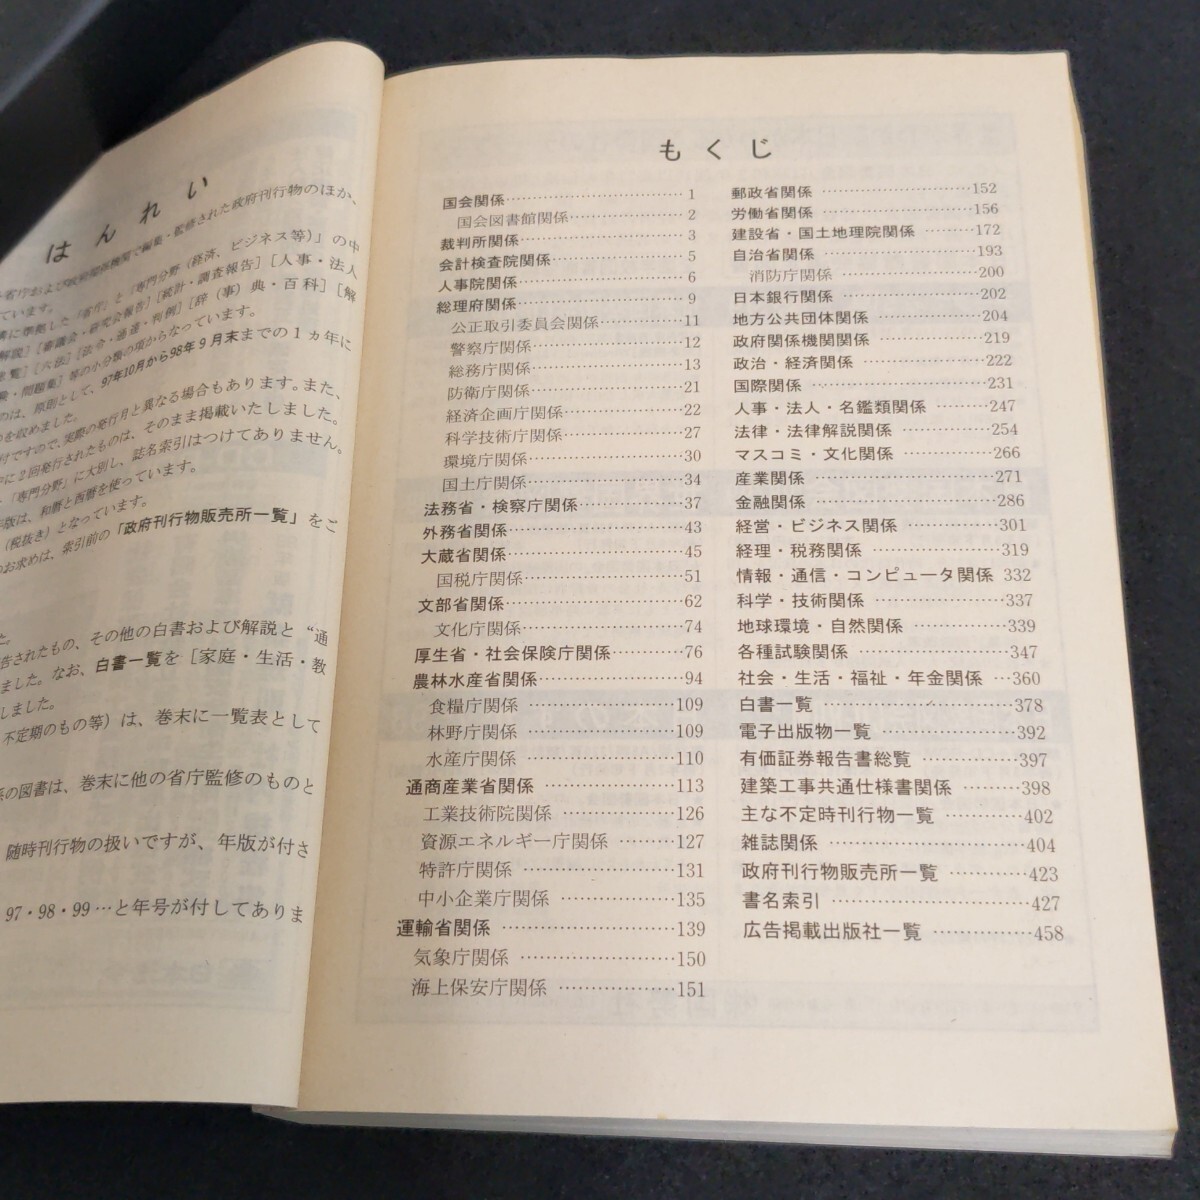 はんれい
省庁および政府関係機関で編集・監修された政府刊行物のほか、
ています。
に準拠した「省庁」と「専門分野(経済、ビジネス等)」の中
解説][審議会・研究会報告][統計・調査報告][人事・法人
覧][六法][法令・通達・判例][辞(事)典・百科][解
・問題集]等の小分類の項からなっています。
のは、原則として、97年10月から98年9月末までの1ヵ年に
を収めました。
付ですので、実際の発行月と異なる場合もあります。また、
中に2回発行されたものは、そのまま掲載いたしました。
「専門分野」に大別し、誌名索引はつけてありません。
年版は、和暦と西暦を使っています。
(税抜き)となっています。
のお求めは、索引前の「政府刊行物販売所一覧」をご
た。
告されたもの、その他の白書および解説と“通
ました。なお、白書一覧を[家庭・生活・教
しました。
不定期のもの等)は、巻末に一覧表として
の図書は、巻末に他の省庁監修のものと
随時刊行物の扱いですが、年版が付さ
97・98・99…と年号が付してありま
もくじ
国会関係……………………………1
国会図書館関係…………………2
裁判所関係…………………………3
会計検査院関係……………………5
人事院関係…………………………6
総理府関係…………………………9
公正取引委員会関係……………11
警察庁関係………………………12
総務庁関係………………………13
防衛庁関係………………………21
経済企画庁関係…………………22
科学技術庁関係…………………27
環境庁関係………………………30
国土庁関係………………………34
法務省・検察庁関係………………37
外務省関係…………………………43
大蔵省関係…………………………45
国税庁関係………………………51
文部省関係…………………………62
文化庁関係………………………74
厚生省・社会保険庁関係…………76
農林水産省関係……………………94
食糧庁関係 ……………………109
林野庁関係 ……………………109
水産庁関係 ……………………110
通商産業省関係 …………………113
工業技術院関係 ………………126
資源エネルギー庁関係 ………127
特許庁関係 ……………………131
中小企業庁関係 ………………135
運輸省関係 ………………………139
気象庁関係 ……………………150
海上保安庁関係 ………………151
郵政省関係 ………………………152
労働省関係 ………………………156
建設省・国土地理院関係 ………172
自治省関係 ………………………193
消防庁関係 ……………………200
日本銀行関係 ……………………202
地方公共団体関係 ………………204
政府関係機関関係 ………………219
政治・経済関係 …………………222
国際関係 …………………………231
人事・法人・名鑑類関係 ………247
法律・法律解説関係 ……………254
マスコミ・文化関係 ……………266
産業関係 …………………………271
金融関係 …………………………286
経営・ビジネス関係 ……………301
経理・税務関係 …………………319
情報・通信・コンピュータ関係 332
科学・技術関係 …………………337
地球環境・自然関係 ……………339
各種試験関係 ……………………347
社会・生活・福祉・年金関係 …360
白書一覧 …………………………378
電子出版物一覧 …………………392
有価証券報告書総覧 ……………397
建築工事共通仕様書関係 ………398
主な不定時刊行物一覧 …………402
雑誌関係 …………………………404
政府刊行物販売所一覧 …………423
書名索引 …………………………427
広告掲載出版社一覧 ……………458